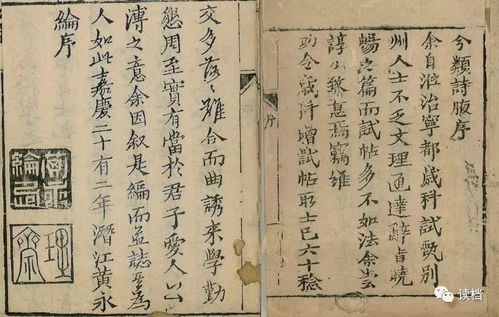 分類詩腋序
余自涖治寧都歲科試甄別
州人士不乏文理通達辭旨曉
暢之篇而試帖多不如法余嘗
諄
功令歲科增試帖取士已六十稔
序
交多落落難合而曲誘來學勤
懇周至實有當於君子愛人以
溥之意余因叙是編而並誌其為
人如此嘉慶二十有二年潛江黃永
綸序
黃永
綸印
理
齋
读档